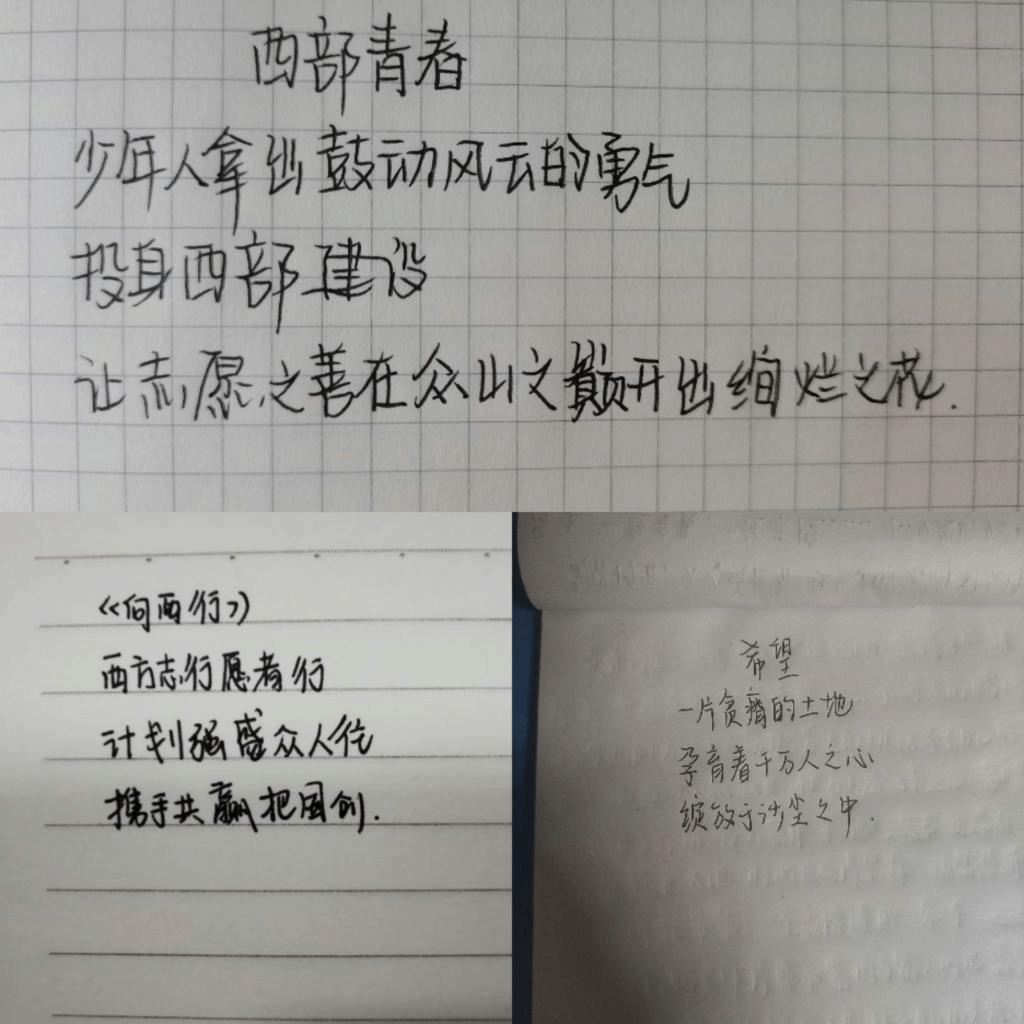 西部青春
少年人拿出鼓动风云的勇气
投身西部建设
让志愿之善在众山之巅开出绚烂之花.
《向西行》
西方志行愿者行
计划强盛众人往
携手共赢把国创.
希望
一片贫瘠的土地
孕育着千万人之心
绽放于沙尘之中.